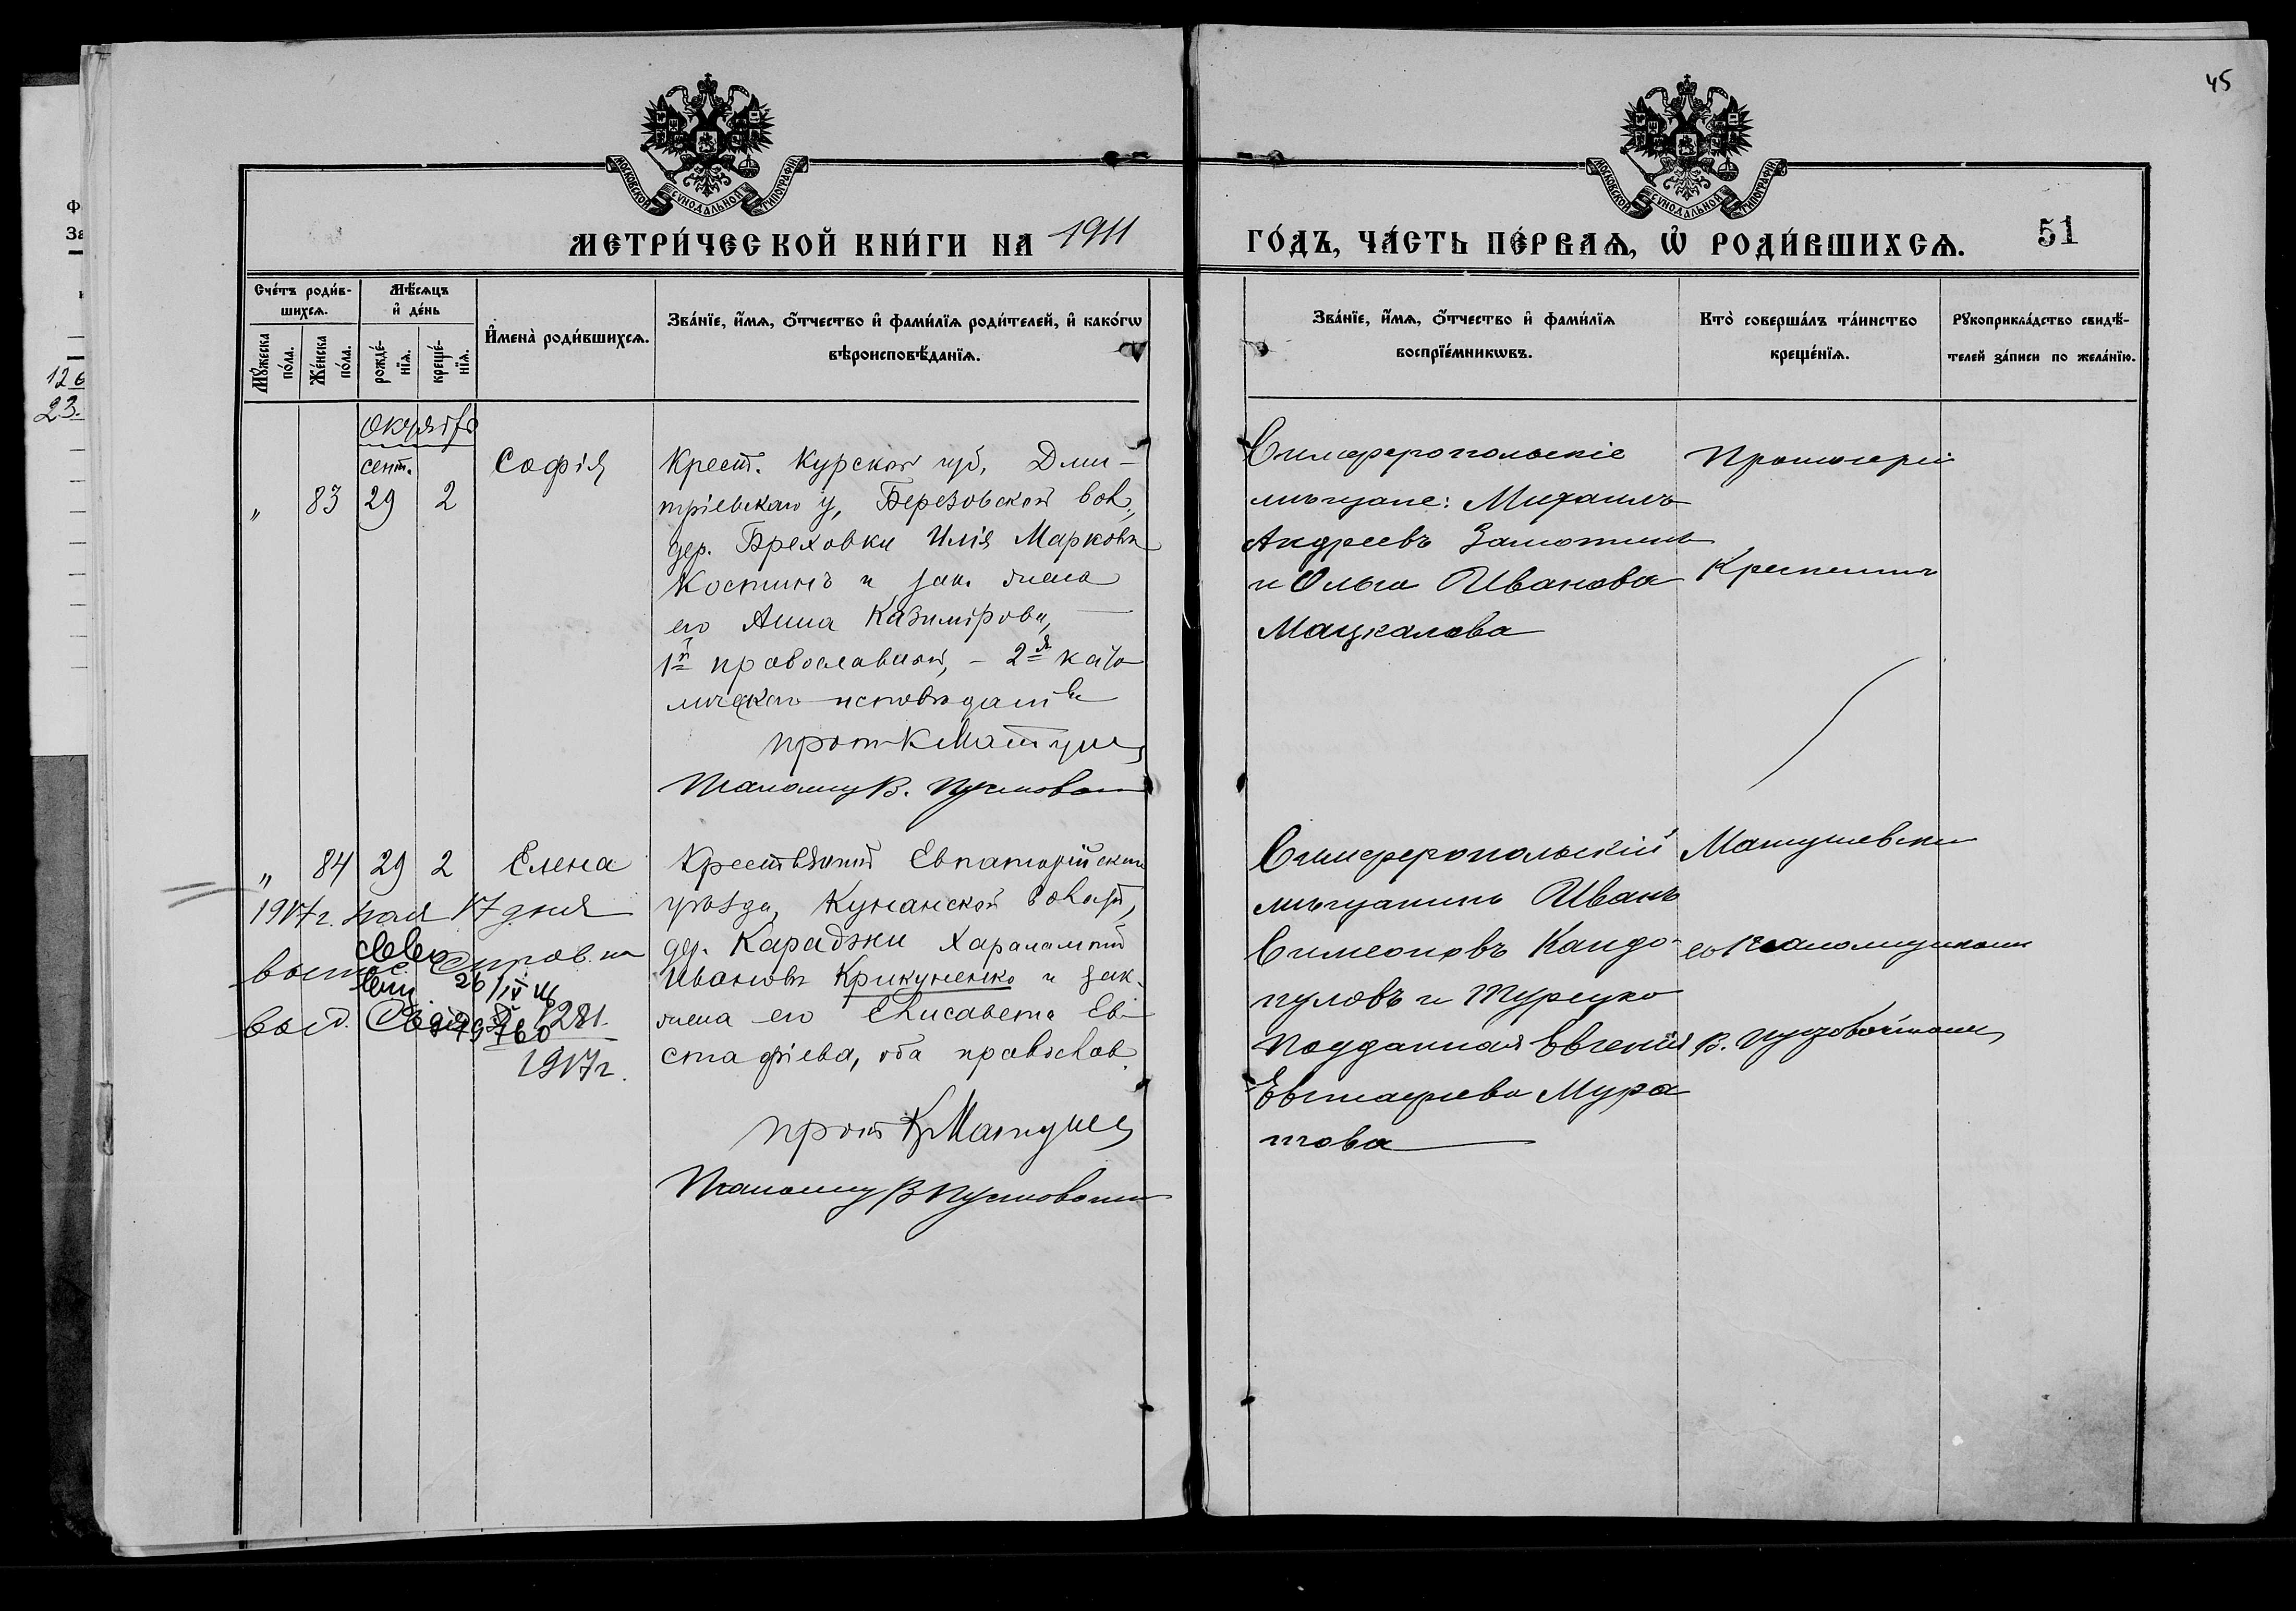 45
МОСКОВСКОЙ СѴНОДАЛЬНОЙ ТИПОГРАФІИ
МОСКОВСКОЙ СѴНОДАЛЬНОЙ ТИПОГРАФІИ
МЕТРИ́ЧЕСКОЙ КНИ́ГИ НА 1911
ГО́ДЪ, ЧА́СТЬ ПЕ́РВАѦ, Ѡ҆ РОДИ́ВШИХСѦ. 51
Сче́тъ роди́в-
шихсѧ.
Мꙋ́жеска по́ла.
Же́нска по́ла.
Мѣ́сѧцъ
и҆ де́нь
рожде́-
нїѧ.
креще́-
нїѧ.
И҆мена̀ роди́вшихсѧ.
Зва́нїе, и҆́мѧ, ѻ҆́тчество и҆ фами́лїѧ роди́телей, и҆ како́гѡ
вѣроисповѣ́данїѧ.
Зва́нїе, и҆́мѧ, ѻ҆́тчество и҆ фами́лїѧ
воспрїе́мникѡвъ.
Кто̀ соверша́лъ та́инство
креще́нїѧ.
Рꙋкоприкла́дство свидѣ́-
телей за́писи по жела́нїю.
126
23.
сент.
" 83 29 2 Софія
Крест. Курской губ. Дми-
тріевскаго у, Березовской вол.,
дер. Бреховки Илія Марковъ
Костинъ и зак. жена
его Анна Казимірова,
1й православный, - 2я като
лическаго исповѣданія
прот К Матуше
Псаломщ В. Пустовой
Симферопольскіе
мѣщане: Михаилъ
Андреевъ Замотинъ
и Ольга Иванова
Мацкалова
Протоіерей
" 84 29 2 Елена
1917г. мая 17 дня
26/IV
выд. 281
1917г.
Крестьянинъ Евпаторійскаго
уѣзда, Кунанской волост,
дер. Караджи Харалампій
Ивановъ Крикуненко и зак.
жена его Елисавета Ев-
стафіева, оба православ.
прот К Матуше
Псаломщ В Пустовой
Симферопольскій
мѣщанинъ Иванъ
Симеоновъ Кандо-
пуловъ и Турецко
подданная Евгенія
Евстафіева Мура
това
Матушевскій
съ псаломщикомъ
В. Пустовойтомъ